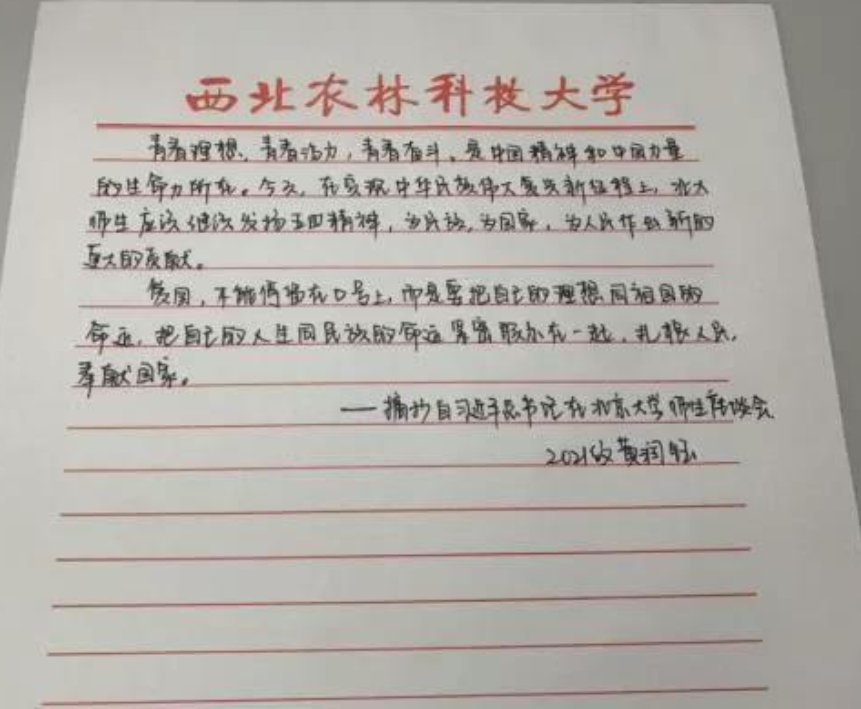 西北农林科技大学
青春理想、青春活力,青春奋斗,是中国精神和中国力量
的生命力所在。今天,在实现中华民族伟大复兴新征程上,北大
师生应该继续发扬五四精神,为民族、为国家,为人民作出新的
更大的贡献。
爱国,不能停留在口号上,而是要把自己的理想同祖国的
命运,把自己的人生同民族的命运紧密联系在一起,扎根人民,
奉献国家。
——摘抄自习近平总书记在北京大学师生座谈会
2021级黄润钰